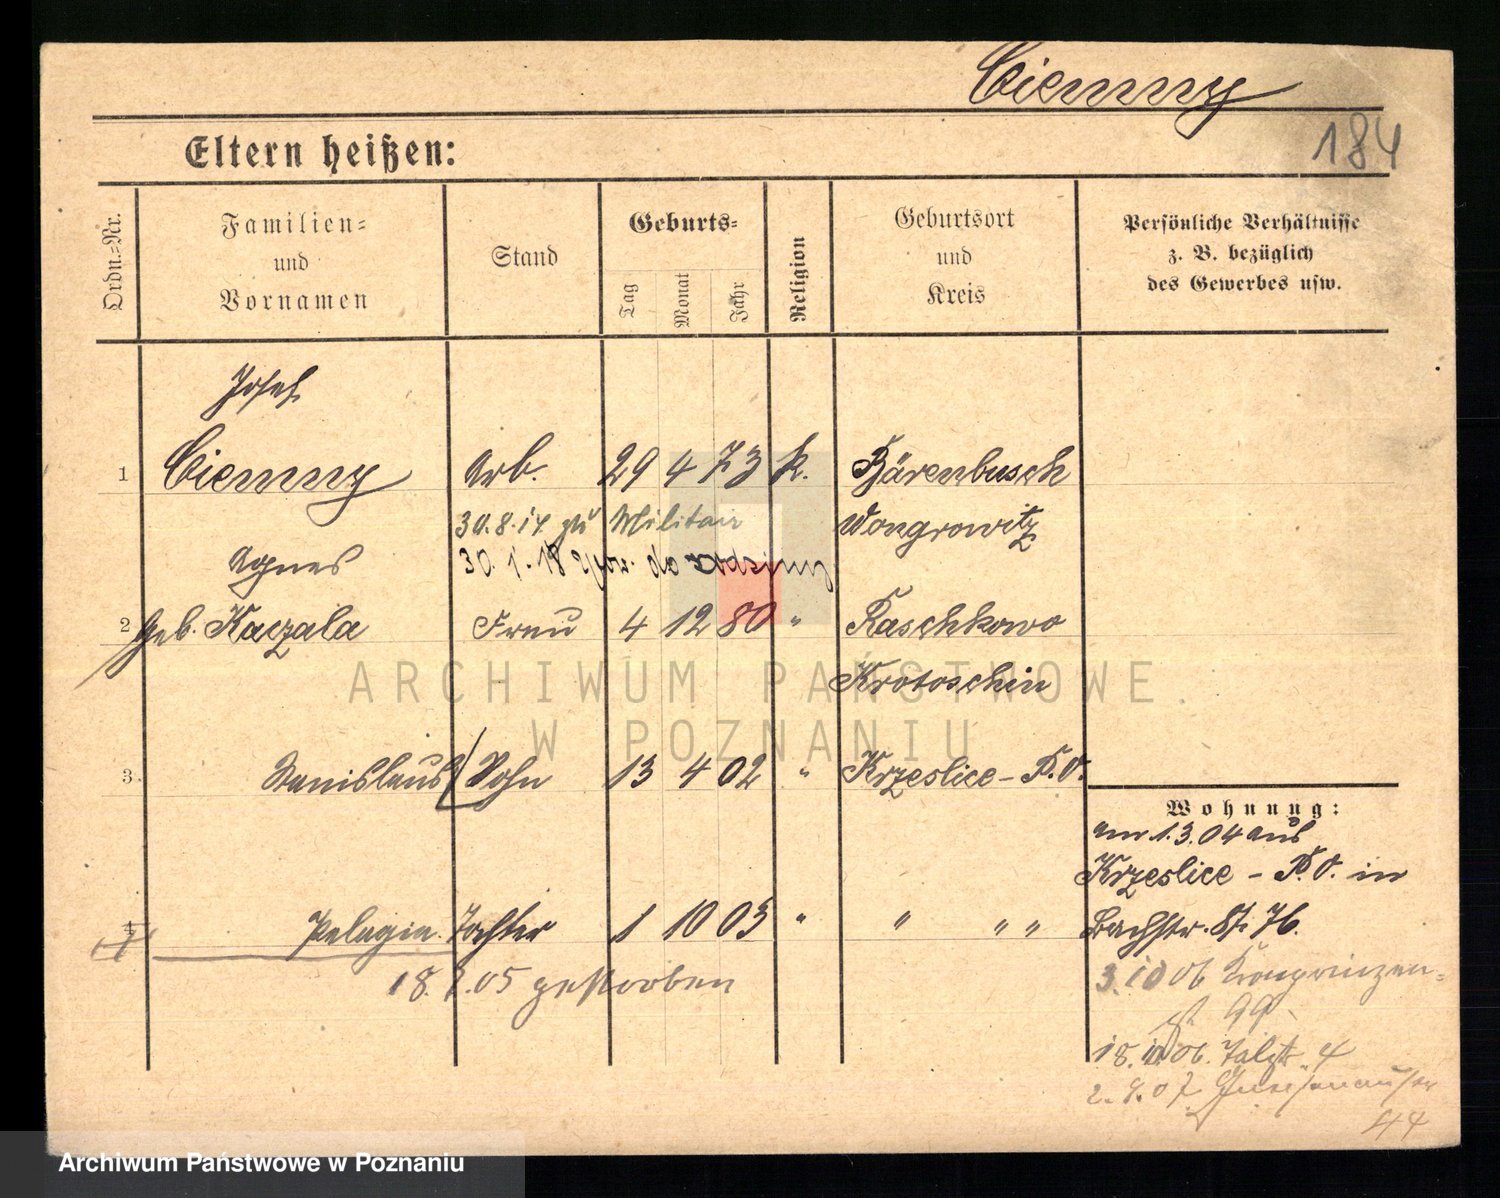 Ciemny
184
Eltern heißen:
Ordn.-Nr.
Familien-
und
Vornamen
Stand
Geburts-
Tag
Monat
Jahr
Religion
Geburtsort
und
Kreis
Persönliche Verhältnisse
z. B. bezüglich
des Gewerbes usw.
Josef
1 Ciemny Arb. 29 4 73 k. Bärenbusch
30.8.17 zu Militair Wongrowitz
Agnes 30. 1. 18 do rodziny
2 geb. Kaczala Frau 4 12 80 " Raschkowo
Krotoschin
3. Stanislaus Sohn 13 4 02 " Krzeslice - P.O.
Wohnung:
am 1.3.04 aus
Krzeslice - P.O. in
4 Pelagia Tochter 1 10 03 " " " " Bachstr. 76.
18. 7. 05 gestorben
3.10 06 Kronprinzen-
st 99
18. 06. 4
2. 9. 07 Gneisenauser
44
ARCHIWUM PAŃSTWOWE
W POZNANIU
Archiwum Państwowe w Poznaniu